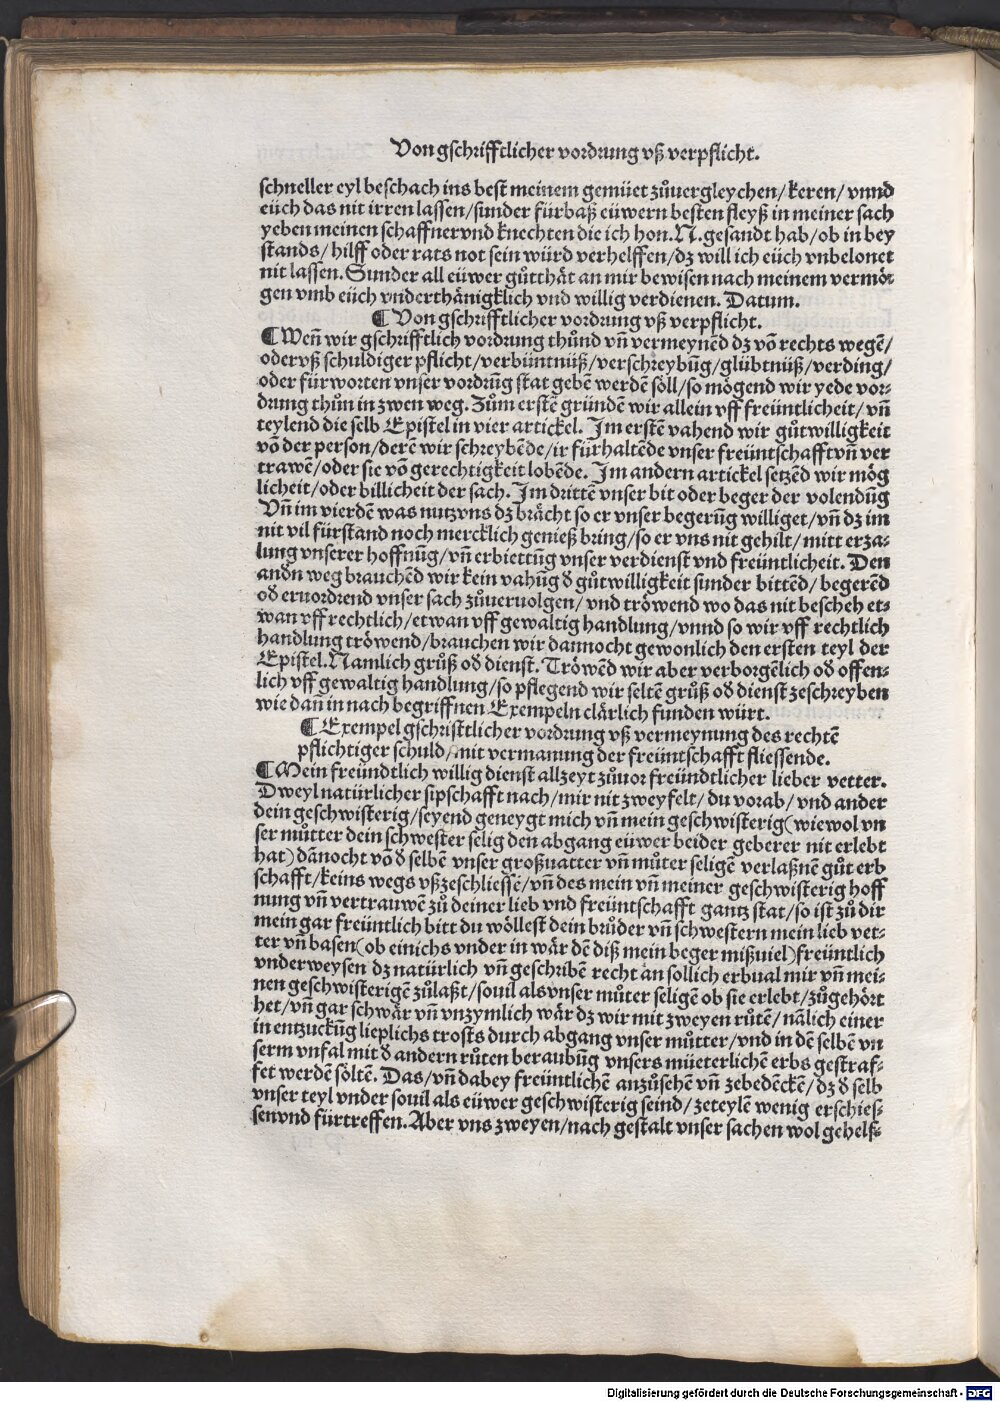 Von gschrifftlicher vordrung vß verpflicht.
schneller eyl beschach ins best meinem gemüet zůuergleychen/ keren/ vnnd
eüch das nit irren lassen/sunder fürbaß eüwern besten fleyß in meiner sach
yeben meinen schaffner vnd knechten die ich hon. N. gesandt hab/ob in bey
stands/ hilff oder rats not sein würd verhelffen/dz will ich eüch vnbelonet
nit lassen. Sunder all eüwer gůtthät an mir bewisen nach meinem vermö⸗
gen vmb eüch vnderthänigklich vnd willig verdienen. Datum.
¶ Von gschrifftlicher vordrung vß verpflicht.
¶ Wen̄ wir gschrifftlich vordrung thůnd vn̄ vermeynēd dz vō rechts wegē/
oder vß schuldiger pflicht/verbüntnüß/verschreybūg/glübtnüß/verding/
oder fürworten vnser vordrūg stat gebē werdē söll/so mögend wir yede vor⸗
drung thůn in zwen weg. Zům erstē gründē wir allein vff freüntlicheit/ vn̄
teylend die selb Epistel in vier artickel. Im erstē vahend wir gůtwilligkeit
vō der person/derē wir schreybēde/ir fürhaltēde vnser freüntschafft vn̄ ver
trawē/oder sie vō gerechtigkeit lobēde. Im andern artickel setzēd wir mög
licheit/oder billicheit der sach. Im drittē vnser bit oder beger der volendūg
Vn̄ im vierdē was nutz vns dz brächt so er vnser begerūg williget/vn̄ dz im
nit vil fürstand noch mercklich genieß bring/so er vns nit gehilt/mitt erza⸗
lung vnserer hoffnūg/vn̄ erbiettūg vnser verdienst vnd freüntlicheit. Den
andn weg brauchēd wir kein vahūg d̄ gůtwilligkeit sunder bittēd/begerēd
od̄ eruordrend vnser sach zůueruolgen/ vnd tröwend wo das nit bescheh et⸗
wan vff rechtlich/etwan vff gewaltig handlung/vnnd so wir vff rechtlich
handlung tröwend/brauchen wir dannocht gewonlich den ersten teyl der
Epistel. Namlich grůß od̄ dienst. Tröwēd wir aber verborgēlich od̄ offen⸗
lich vff gewaltig handlung/so pflegend wir seltē grůß od̄ dienst zeschreyben
wie dan̄ in nach begriffnen Exempeln clärlich funden würt.
¶ Exempel gschrifftlicher vordrung vß vermeynung des rechtē
pflichtiger schuld/mit vermanung der freüntschafft fliessende.
¶ Mein freündtlich willig dienst allzeyt zůuor freündtlicher lieber vetter.
Dweyl natürlicher sipschafft nach/mir nit zweyfelt/ du vorab/ vnd ander
dein geschwisterig/seyend geneygt mich vn̄ mein geschwisterig(wiewol vn
ser můtter dein schwester selig den abgang eüwer beider geberer nit erlebt
hat) dānocht vō d̄ selbē vnser großuatter vn̄ můter seligē verlaßnē gůt erb
schafft/keins wegs vßzeschliessē/vn̄ des mein vn̄ meiner geschwisterig hoff
nung vn̄ vertrauwē zů deiner lieb vnd freüntschafft gantz stat/so ist zů dir
mein gar freüntlich bitt du wöllest dein brůder vn̄ schwestern mein lieb vet⸗
ter vn̄ basen(ob einichs vnder in wär dē diß mein beger mißuiel)freüntlich
vnderweysen dz natürlich vn̄ geschribē recht an sollich erbual mir vn̄ mei⸗
nen geschwisterigē zůlaßt/souil als vnser můter seligē ob sie erlebt/zůgehört
het/vn̄ gar schwär vn̄ vnzymlich wär dz wir mit zweyen růtē/nālich einer
in entzuckūg lieplichs trosts durch abgang vnser můtter/vnd in dē selbē vn
serm vnfal mit d̄ andern růten beraubūg vnsers müeterlichē erbs gestraf⸗
fet werdē söltē. Das/vn̄ dabey freüntlichē anzůsehē vn̄ zebedēckē/dz d̄ selb
vnser teyl vnder souil als eüwer geschwisterig seind/zeteylē wenig erschies⸗
sen vnd fürtreffen. Aber vns zweyen/nach gestalt vnser sachen wol gehelf⸗
Digitalisierung gefördert durch die Deutsche Forschungsgemeinschaft - DFG